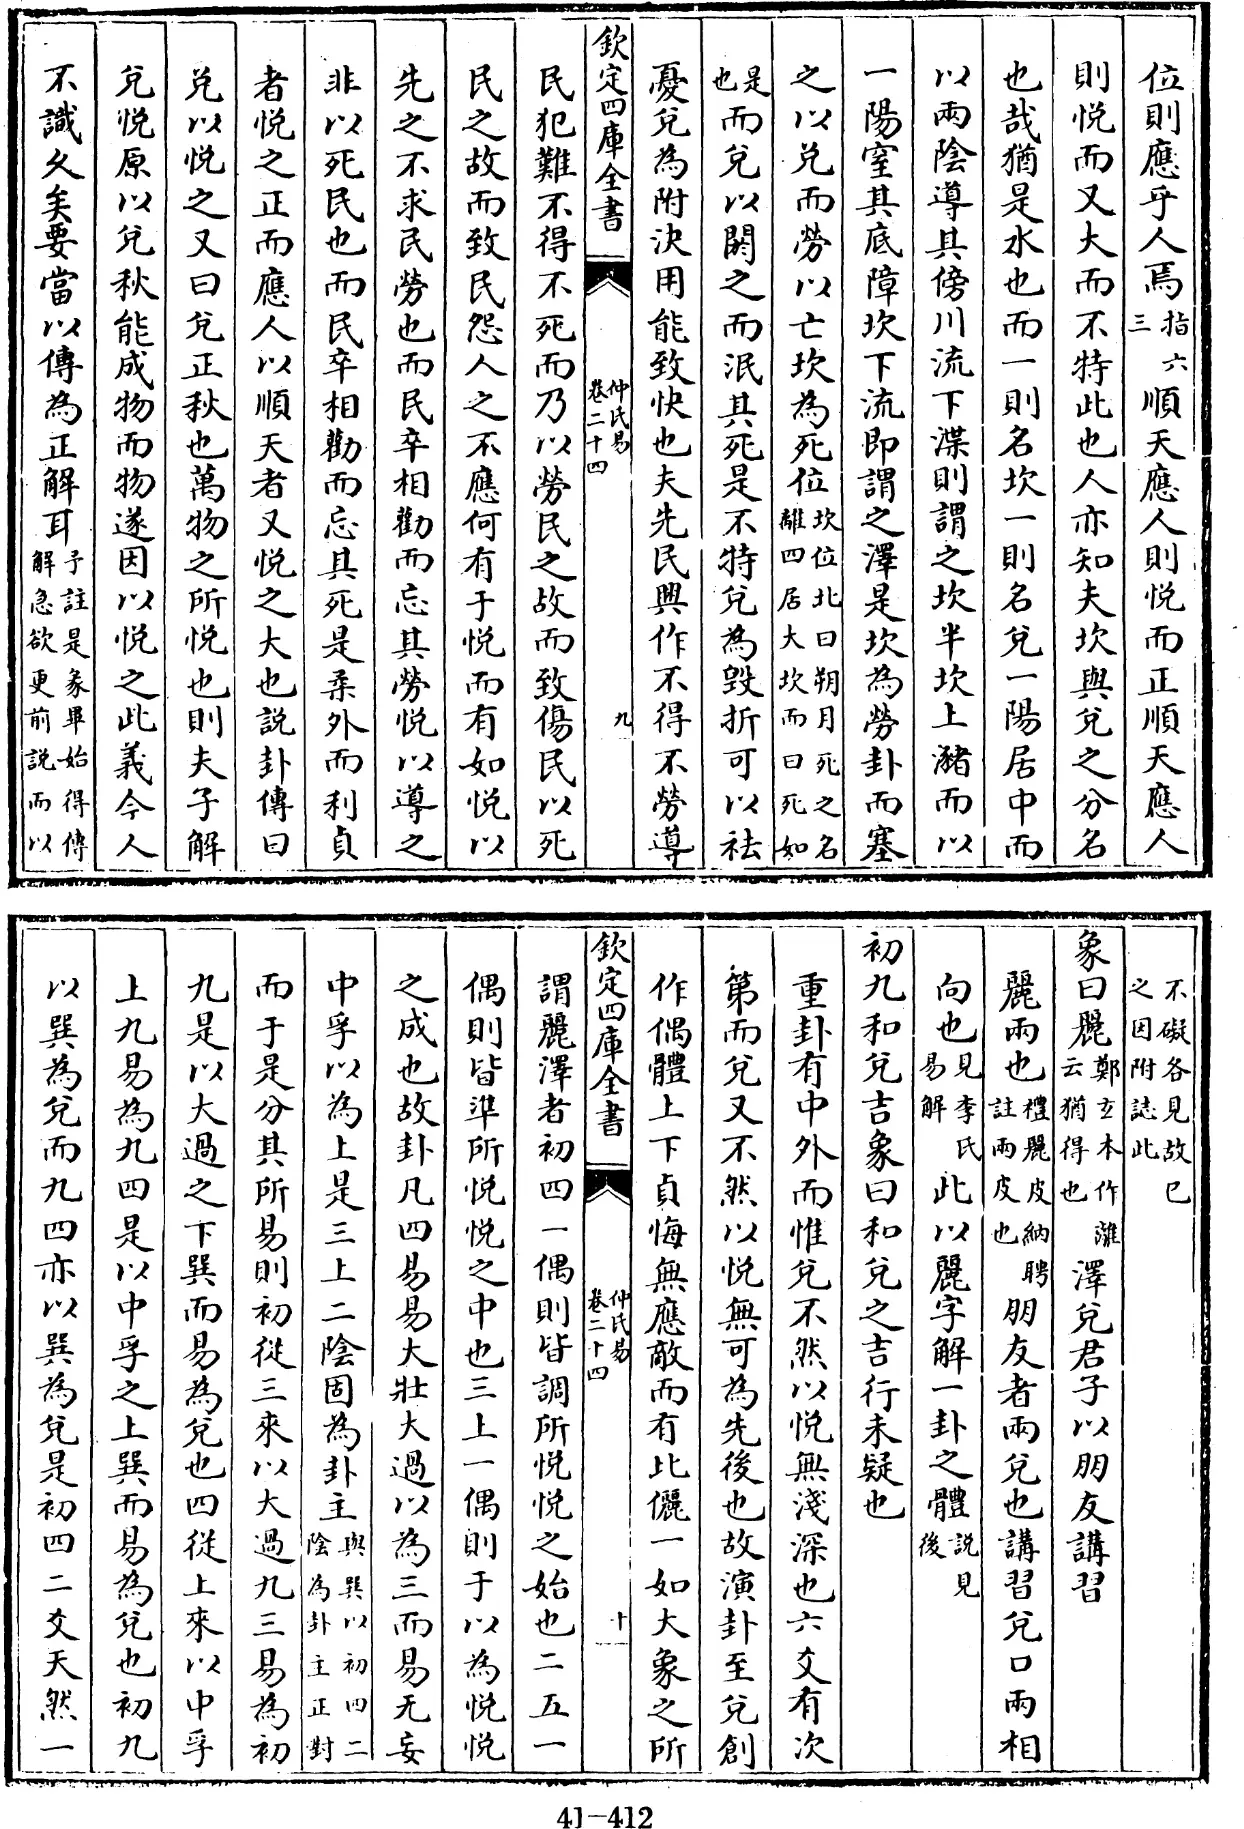 位則應乎人焉指六三順天應人則悦而正順天應人
則悦而又大而不特此也人亦知夫坎與兌之分名
也哉猶是水也而一則名坎一則名兌一陽居中而
以兩陰導其傍川流下渫則謂之坎半坎上瀦而以
一陽室其底障坎下流即謂之澤是坎為勞卦而塞
之以兌而勞以亡坎為死位坎位北曰朔月死之名離四居大坎而曰死如
是也而兌以闕之而泯其死是不特兌為毀折可以祛
憂兌為附決用能致快也夫先民興作不得不勞導
欽定四庫全書
仲氏易
卷二十四
九
民犯難不得不死而乃以勞民之故而致傷民以死
民之故而致民怨人之不應何有于悦而有如悦以
先之不求民勞也而民卒相勸而忘其勞悦以導之
非以死民也而民卒相勸而忘其死是柔外而利貞
者悦之正而應人以順天者又悦之大也說卦傳曰
兌以悦之又曰兌正秋也萬物之所悦也則夫子解
兌悦原以兌秋能成物而物遂因以悦之此義今人
不識久矣要當以傳為正解耳予註是彖畢始得傳解急欲更前說而以
不礙各見故已之因附誌此
象曰麗鄭玄本作離云猶得也澤兌君子以朋友講習
麗兩也禮麗皮納聘註兩皮也朋友者兩兌也講習兌口兩相
向也見李氏易解此以麗字解一卦之體說見後
初九和兌吉象曰和兌之吉行未疑也
重卦有中外而惟兌不然以悦無淺深也六爻有次
第而兌又不然以悦無可為先後也故演卦至兌創
作偶體上下貞悔無應敵而有比儷一如大象之所
欽定四庫全書
仲氏易
卷二十四
十
謂麗澤者初四一偶則皆調所悦悦之始也二五一
偶則皆準所悦悦之中也三上一偶則于以為悦悦
之成也故卦凡四易易大壯大過以為三而易无妄
中孚以為上是三上二陰固為卦主與巽以初四二陰為卦主正對
而于是分其所易則初從三來以大過九三易為初
九是以大過之下巽而易為兌也四從上來以中孚
上九易為九四是以中孚之上巽而易為兌也初九
以巽為兌而九四亦以巽為兌是初四二爻天然一
41-412